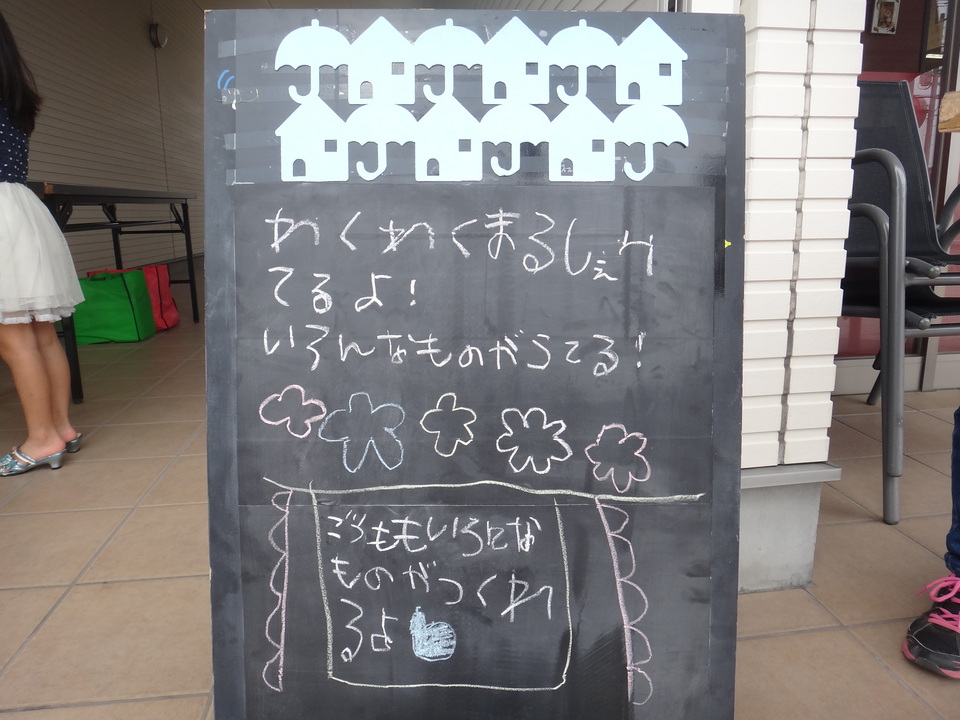 わくわくまるしぇや
てるよ!
いろんなものがうてる!
こどももいろんな
ものがつくれ
るよ